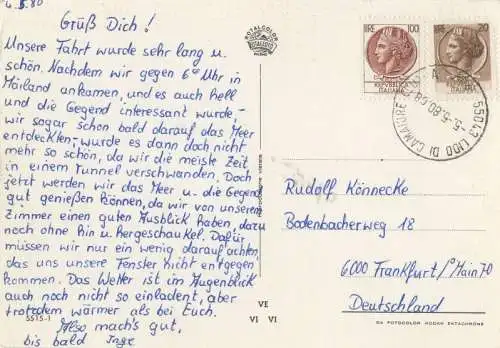 4.5.80
Grüß Dich!
Unsere Fahrt wurde sehr lang u.
schön. Nachdem wir gegen 6⁰⁰ Uhr in
Mailand ankamen, und es auch hell
und die Gegend interessant wurde,-
wir sogar schon bald darauf das Meer
entdeckten- wurde es dann doch nicht
mehr so schön, da wir die meiste Zeit
in einem Tunnel verschwanden. Doch
jetzt werden wir das Meer u. die Gegend
gut genießen können, da wir von unserem
Zimmer einen guten Ausblick haben, dazu
noch ohne hin u. hergeschaukel. Dafür
müssen wir nur ein wenig darauf achten,
das uns unsere Fenster nicht entgegen
kommen. Das Wetter ist im Augenblick
auch noch nicht so einladent, aber
trotzdem wärmer als bei Euch.
Also mach's gut,
bis bald Inge
5515-1
VE
VI VI
ROTALCOLOR
LIRE 100
ITALIANA
LIRE 20
ITALIANA
55043 LIDO DI CAMAIORE
5-5-80
Rudolf Könnecke
Bodenbacherweg 18
6000 Frankfurt/Main 70
Deutschland
DA FOTOCOLOR KODAK EKTACHROME